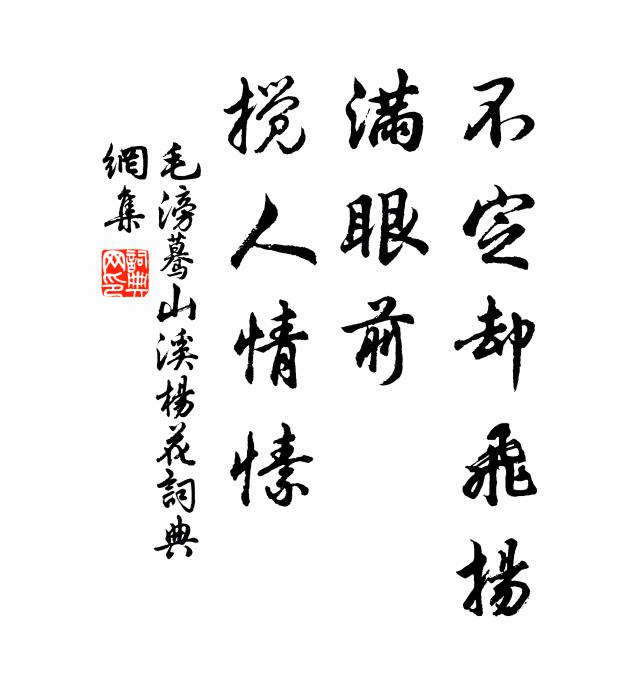 不定却飛揚
滿眼前
搅人情愫
毛滂驀山溪楊花詞典
網集
詞典網印